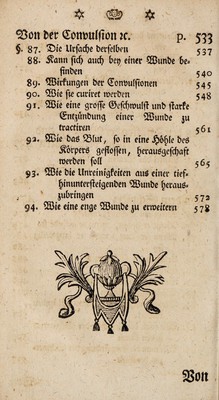 Von der Convulsion ꝛc. p. 533
§. 87. Die Ursache derselben 537
88. Kann sich auch bey einer Wunde be-
finden 540
89. Würkungen der Convulsionen 545
90. Wie sie curiret werden 548
91. Wie eine grosse Geschwulst und starke
Entzündung einer Wunde zu
tractiren 561
92. Wie das Blut, so in eine Höhle des
Körpers geflossen, herausgeschaft
werden soll 565
93. Wie die Unreinigkeiten aus einer tief-
hinuntersteigenden Wunde heraus-
zubringen 572
94. Wie eine enge Wunde zu erweitern 578
Von